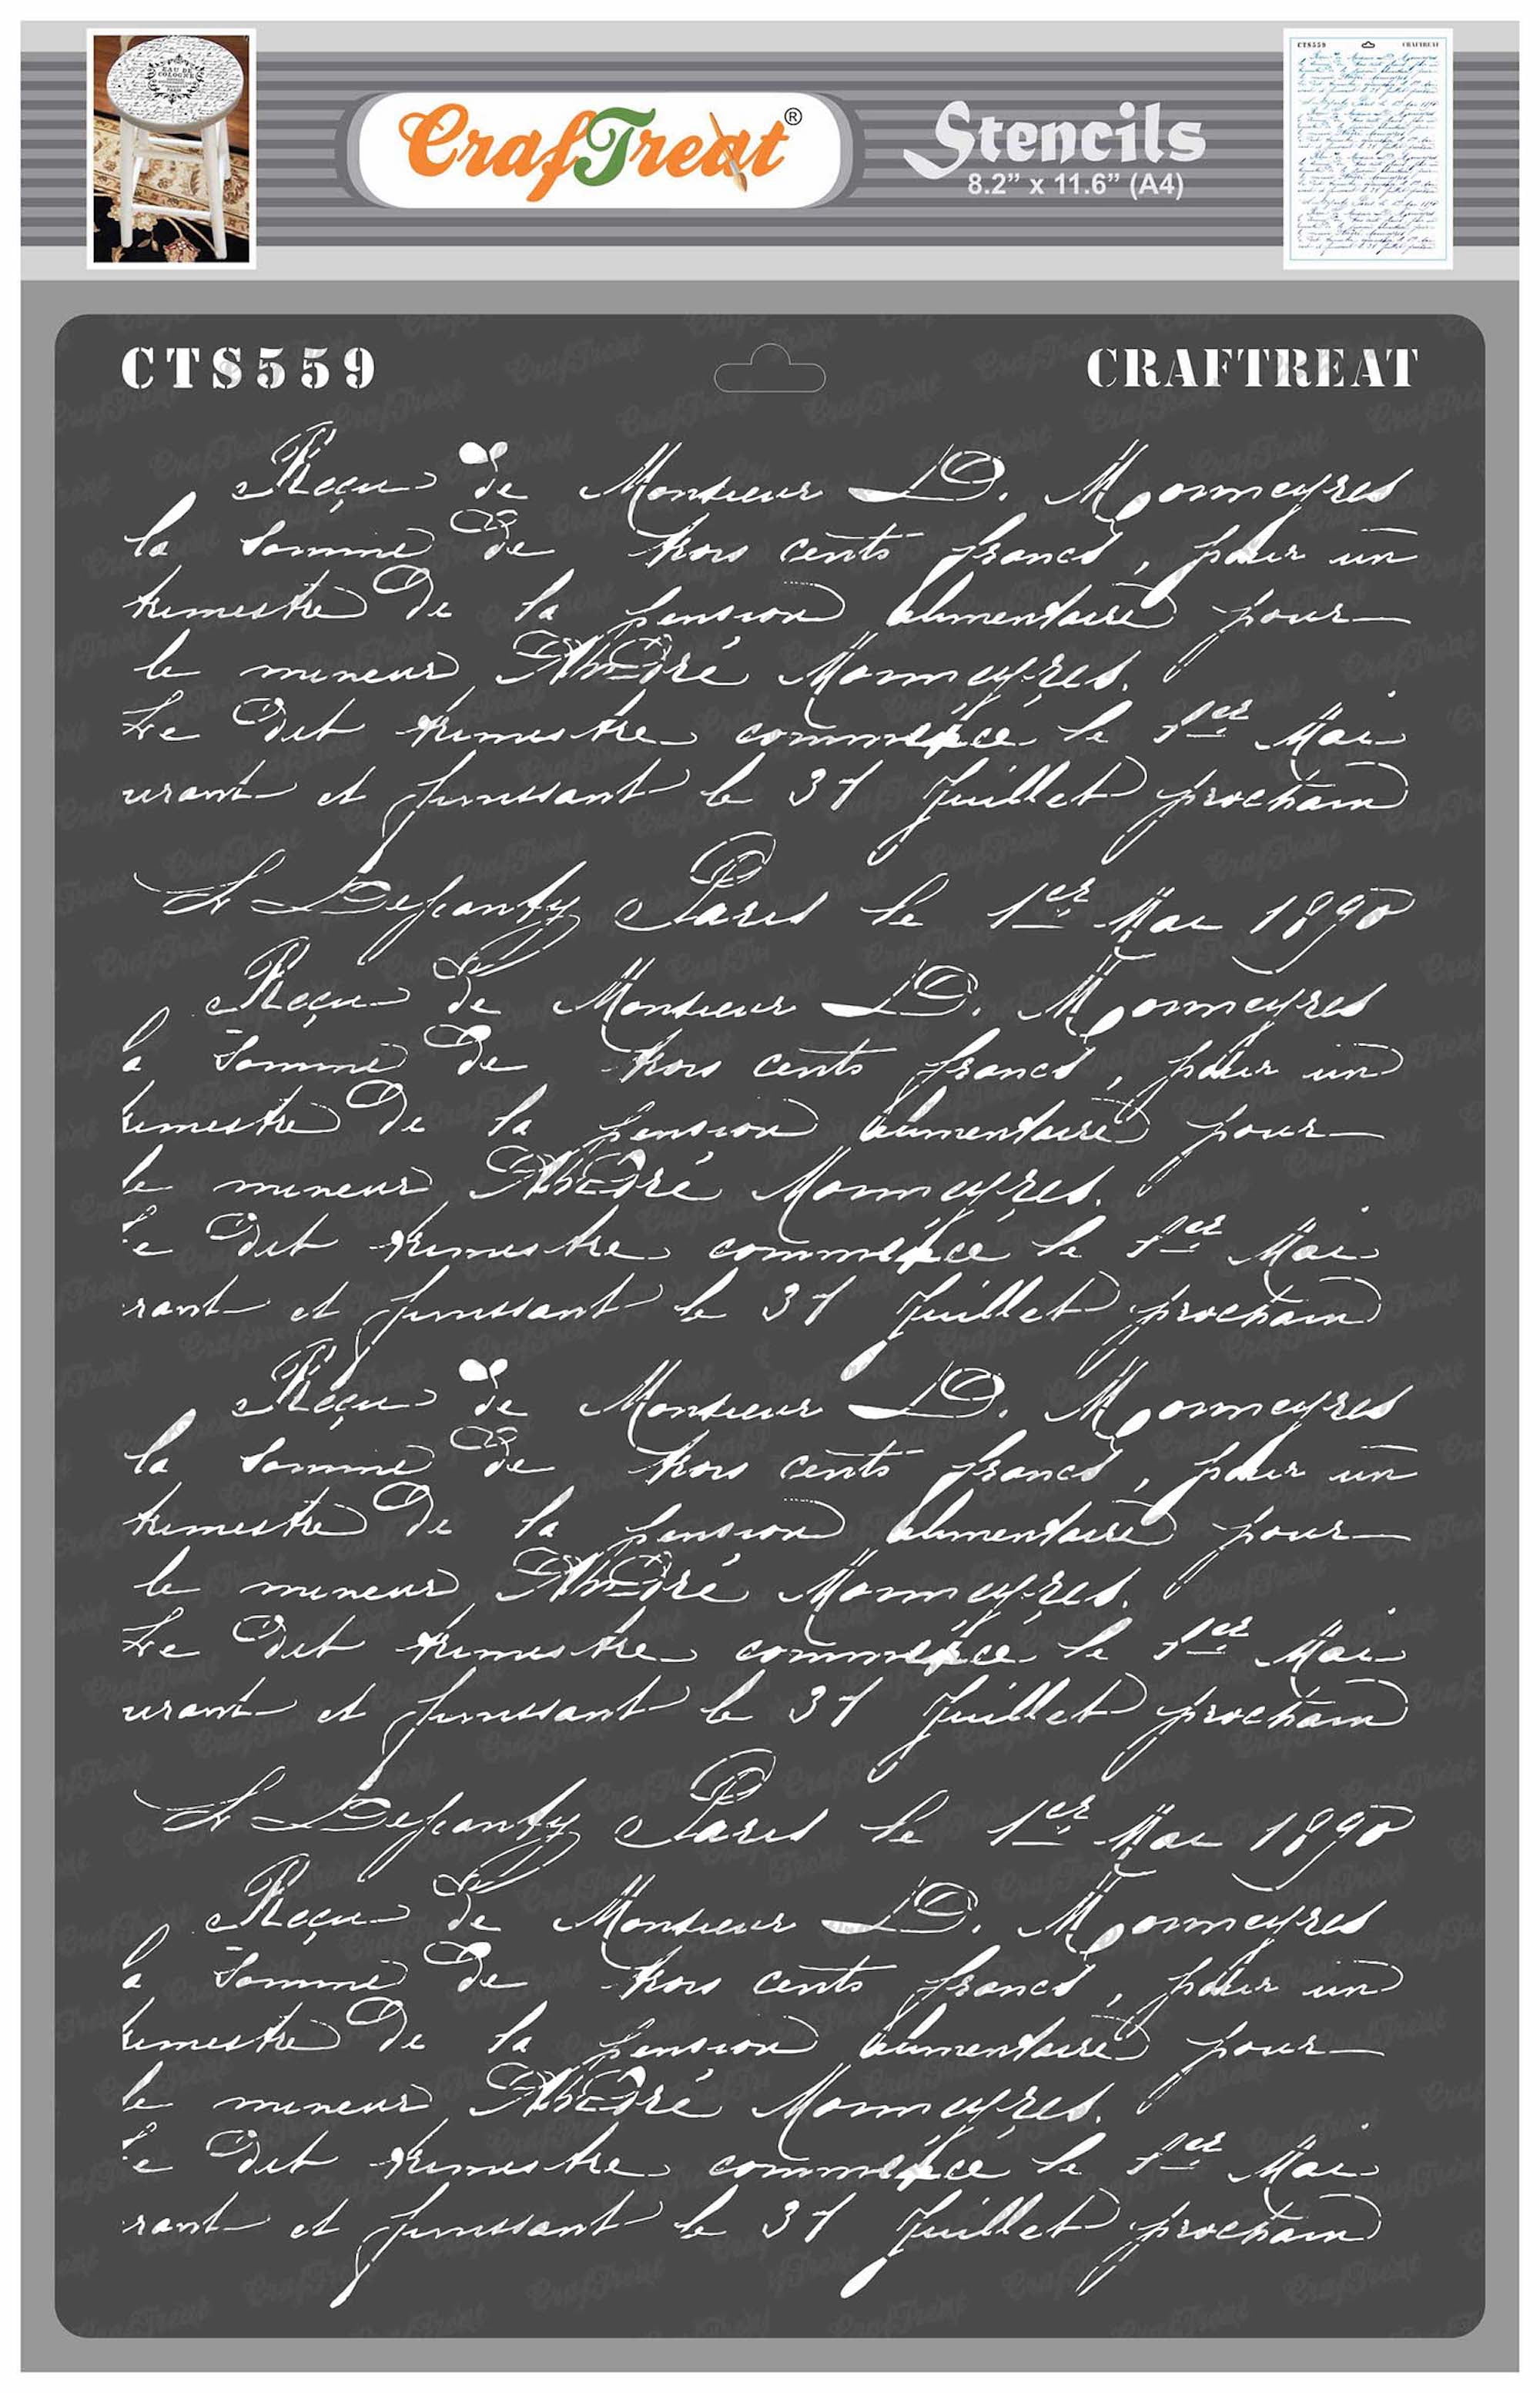 CrafTreat®
Stencils
8.2” x 11.6” (A4)
CTS559 CRAFTREAT
Reçu de Monsieur D. Monmeyres
la somme de trois cents francs, pour un
trimestre de la pension alimentaire pour
le mineur André Monmeyres.
Le dit trimestre commencé le 1er Mai
urant et finissant le 31 Juillet prochain
Paris le 1er Mai 1890
Reçu de Monsieur D. Monmeyres
a somme de trois cents francs, pour un
rimestre de la pension alimentaire pour
le mineur André Monmeyres.
e dit trimestre commencé le 1er Mai
rant et finissant le 31 Juillet prochain
Reçu de Monsieur D. Monmeyres
la somme de trois cents francs, pour un
trimestre de la pension alimentaire pour
le mineur André Monmeyres.
Le dit trimestre commencé le 1er Mai
urant et finissant le 31 Juillet prochain
Paris le 1er Mai 1890
Reçu de Monsieur D. Monmeyres
a somme de trois cents francs, pour un
rimestre de la pension alimentaire pour
le mineur André Monmeyres.
e dit trimestre commencé le 1er Mai
rant et finissant le 31 Juillet prochain